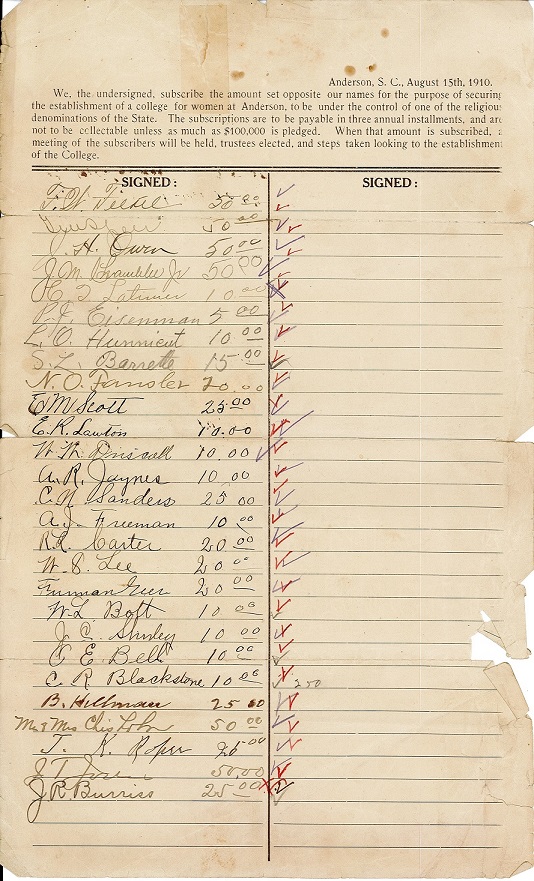 Anderson, S. C., August 15th, 1910.
We, the undersigned, subscribe the amount set opposite our names for the purpose of securing
the establishment of a college for women at Anderson, to be under the control of one of the religious
denominations of the State. The subscriptions are to be payable in three annual installments, and are
not to be collectable unless as much as $100,000 is pledged. When that amount is subscribed, a
meeting of the subscribers will be held, trustees elected, and steps taken looking to the establishment
of the College.
SIGNED: SIGNED:
50 00
50 00
H. Owen 50 00
J. M. Bramblee Jr 50 00
Latimer 10 00
Eisenman 5 00
L. O. Hunnicut 10 00
S. L. Barrette 15 00
N. O. 00
E M Scott 25 00
E. R. Lawton 10.00
W. W. Driscall 10.00
A. R. Jaynes 10 00
C. N. Sanders 25 00
A. J. Freeman 10 00
R. R. Carter 20 00
W. S. Lee 20 00
Furman 20 00
W. L. Bolt 10 00
J. C. Shirley 10 00
E. Bell 10 00
C. R. Blackstone 10 00 250
B. Hillman 25 00
Mr & Mrs 50 00
T. K. Roper 25 00
J T 50.00
J R Burriss 25 00